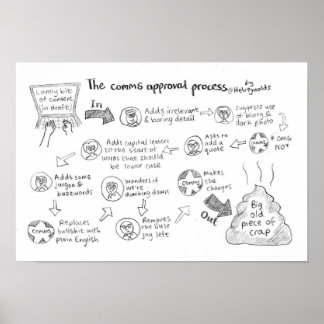 The comms approval process
by @Helreynolds
Lovely bit
of content
(in draft)
In
Adds irrelevant
& boring detail
Suggests use
of blurry &
dark photo
Comms
* Desk
NO *
Asks to
add a
quote
Adds capital letters
to the start of
words that should
be lower case
Adds some
jargon &
buzzwords
Comms
Replaces
bullshit with
plain English
Wonders if
we're
dumbing down
Removes
the little
joy left
Comms
Makes
the
changes
Out
Big
old
piece of
crap